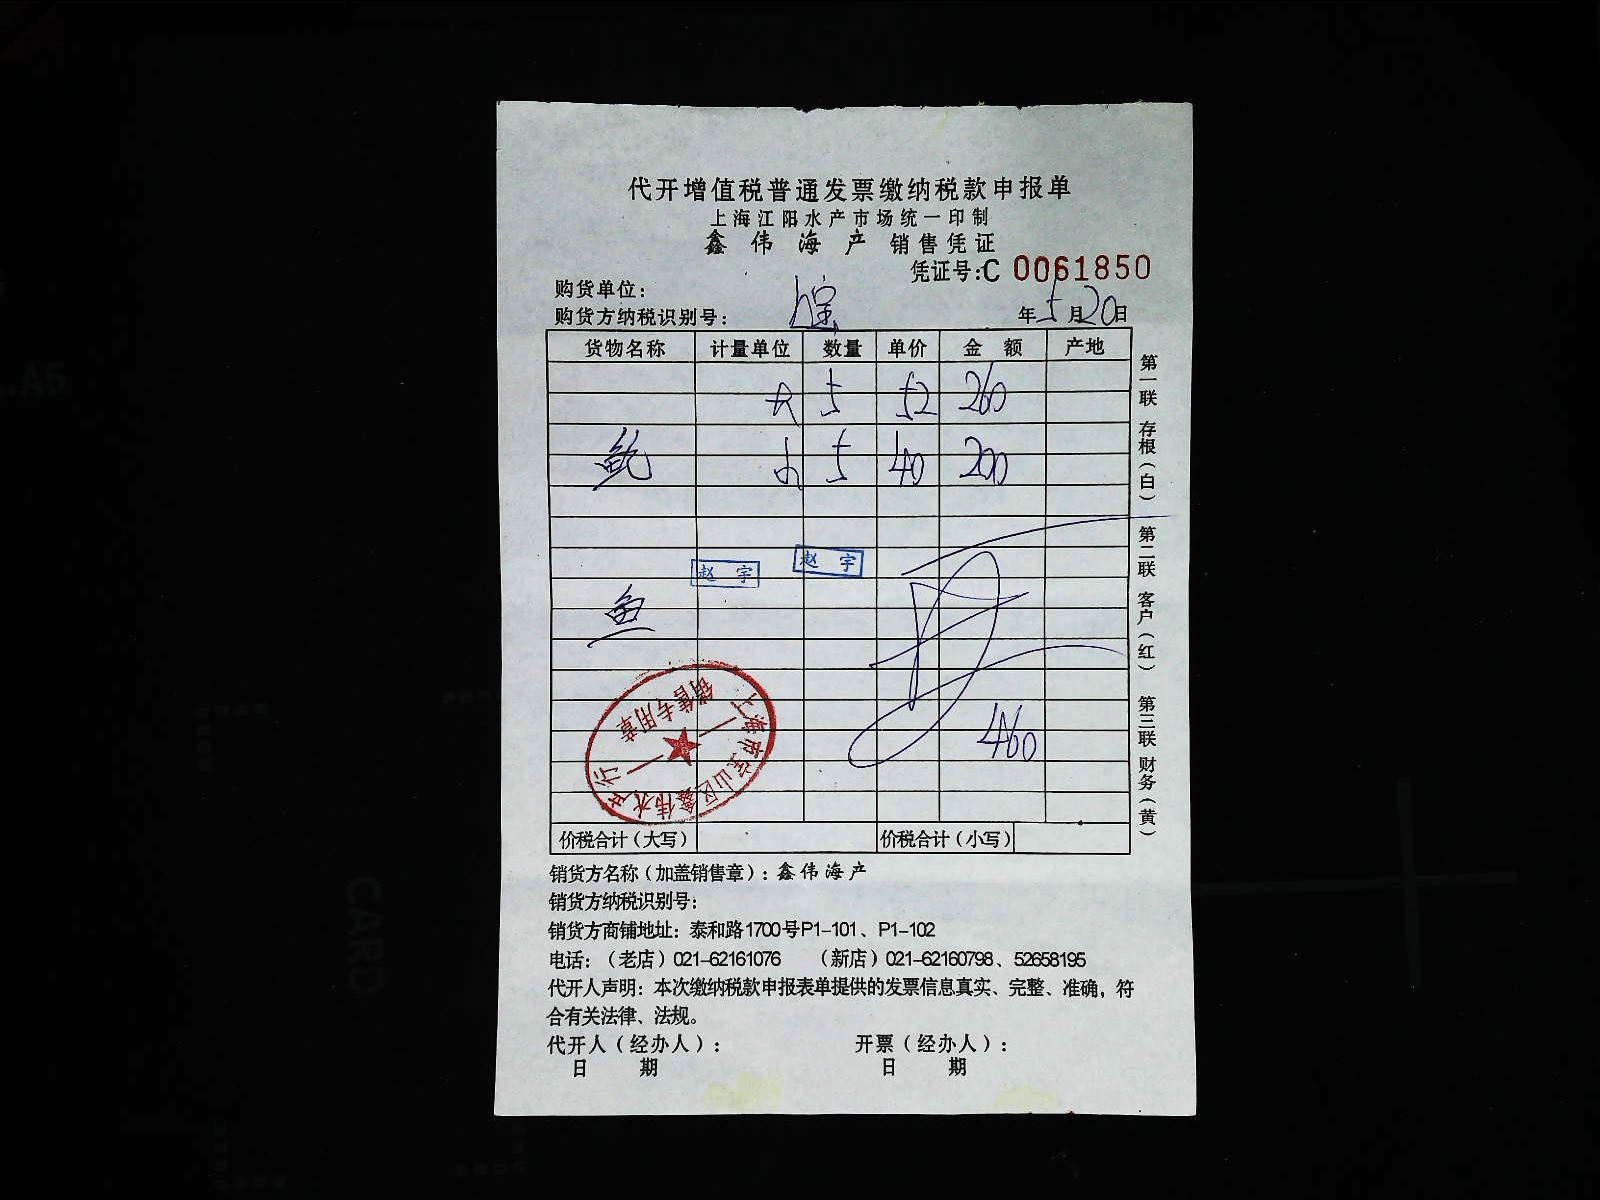 代开增值税普通发票缴纳税款申报单
上海江阳水产市场统一印制
鑫伟海产 销售凭证
凭证号:C 0061850
购货单位:
购货方纳税识别号:
年5月20日
货物名称 计量单位 数量 单价 金额 产地
大 5 52 260
鱿 小 5 40 200
赵宇 赵宇
鱼
460
上海市宝山区鑫伟水产行
销售专用章
价税合计(大写) 价税合计(小写)
第一联 存根(白) 第二联 客户(红) 第三联 财务(黄)
销货方名称(加盖销售章): 鑫伟海产
销货方纳税识别号:
销货方商铺地址: 泰和路1700号P1-101、P1-102
电话:(老店)021-62161076 (新店)021-62160798、52658195
代开人声明: 本次缴纳税款申报表单提供的发票信息真实、完整、准确, 符
合有关法律、法规。
代开人(经办人): 开票(经办人):
日 期 日 期